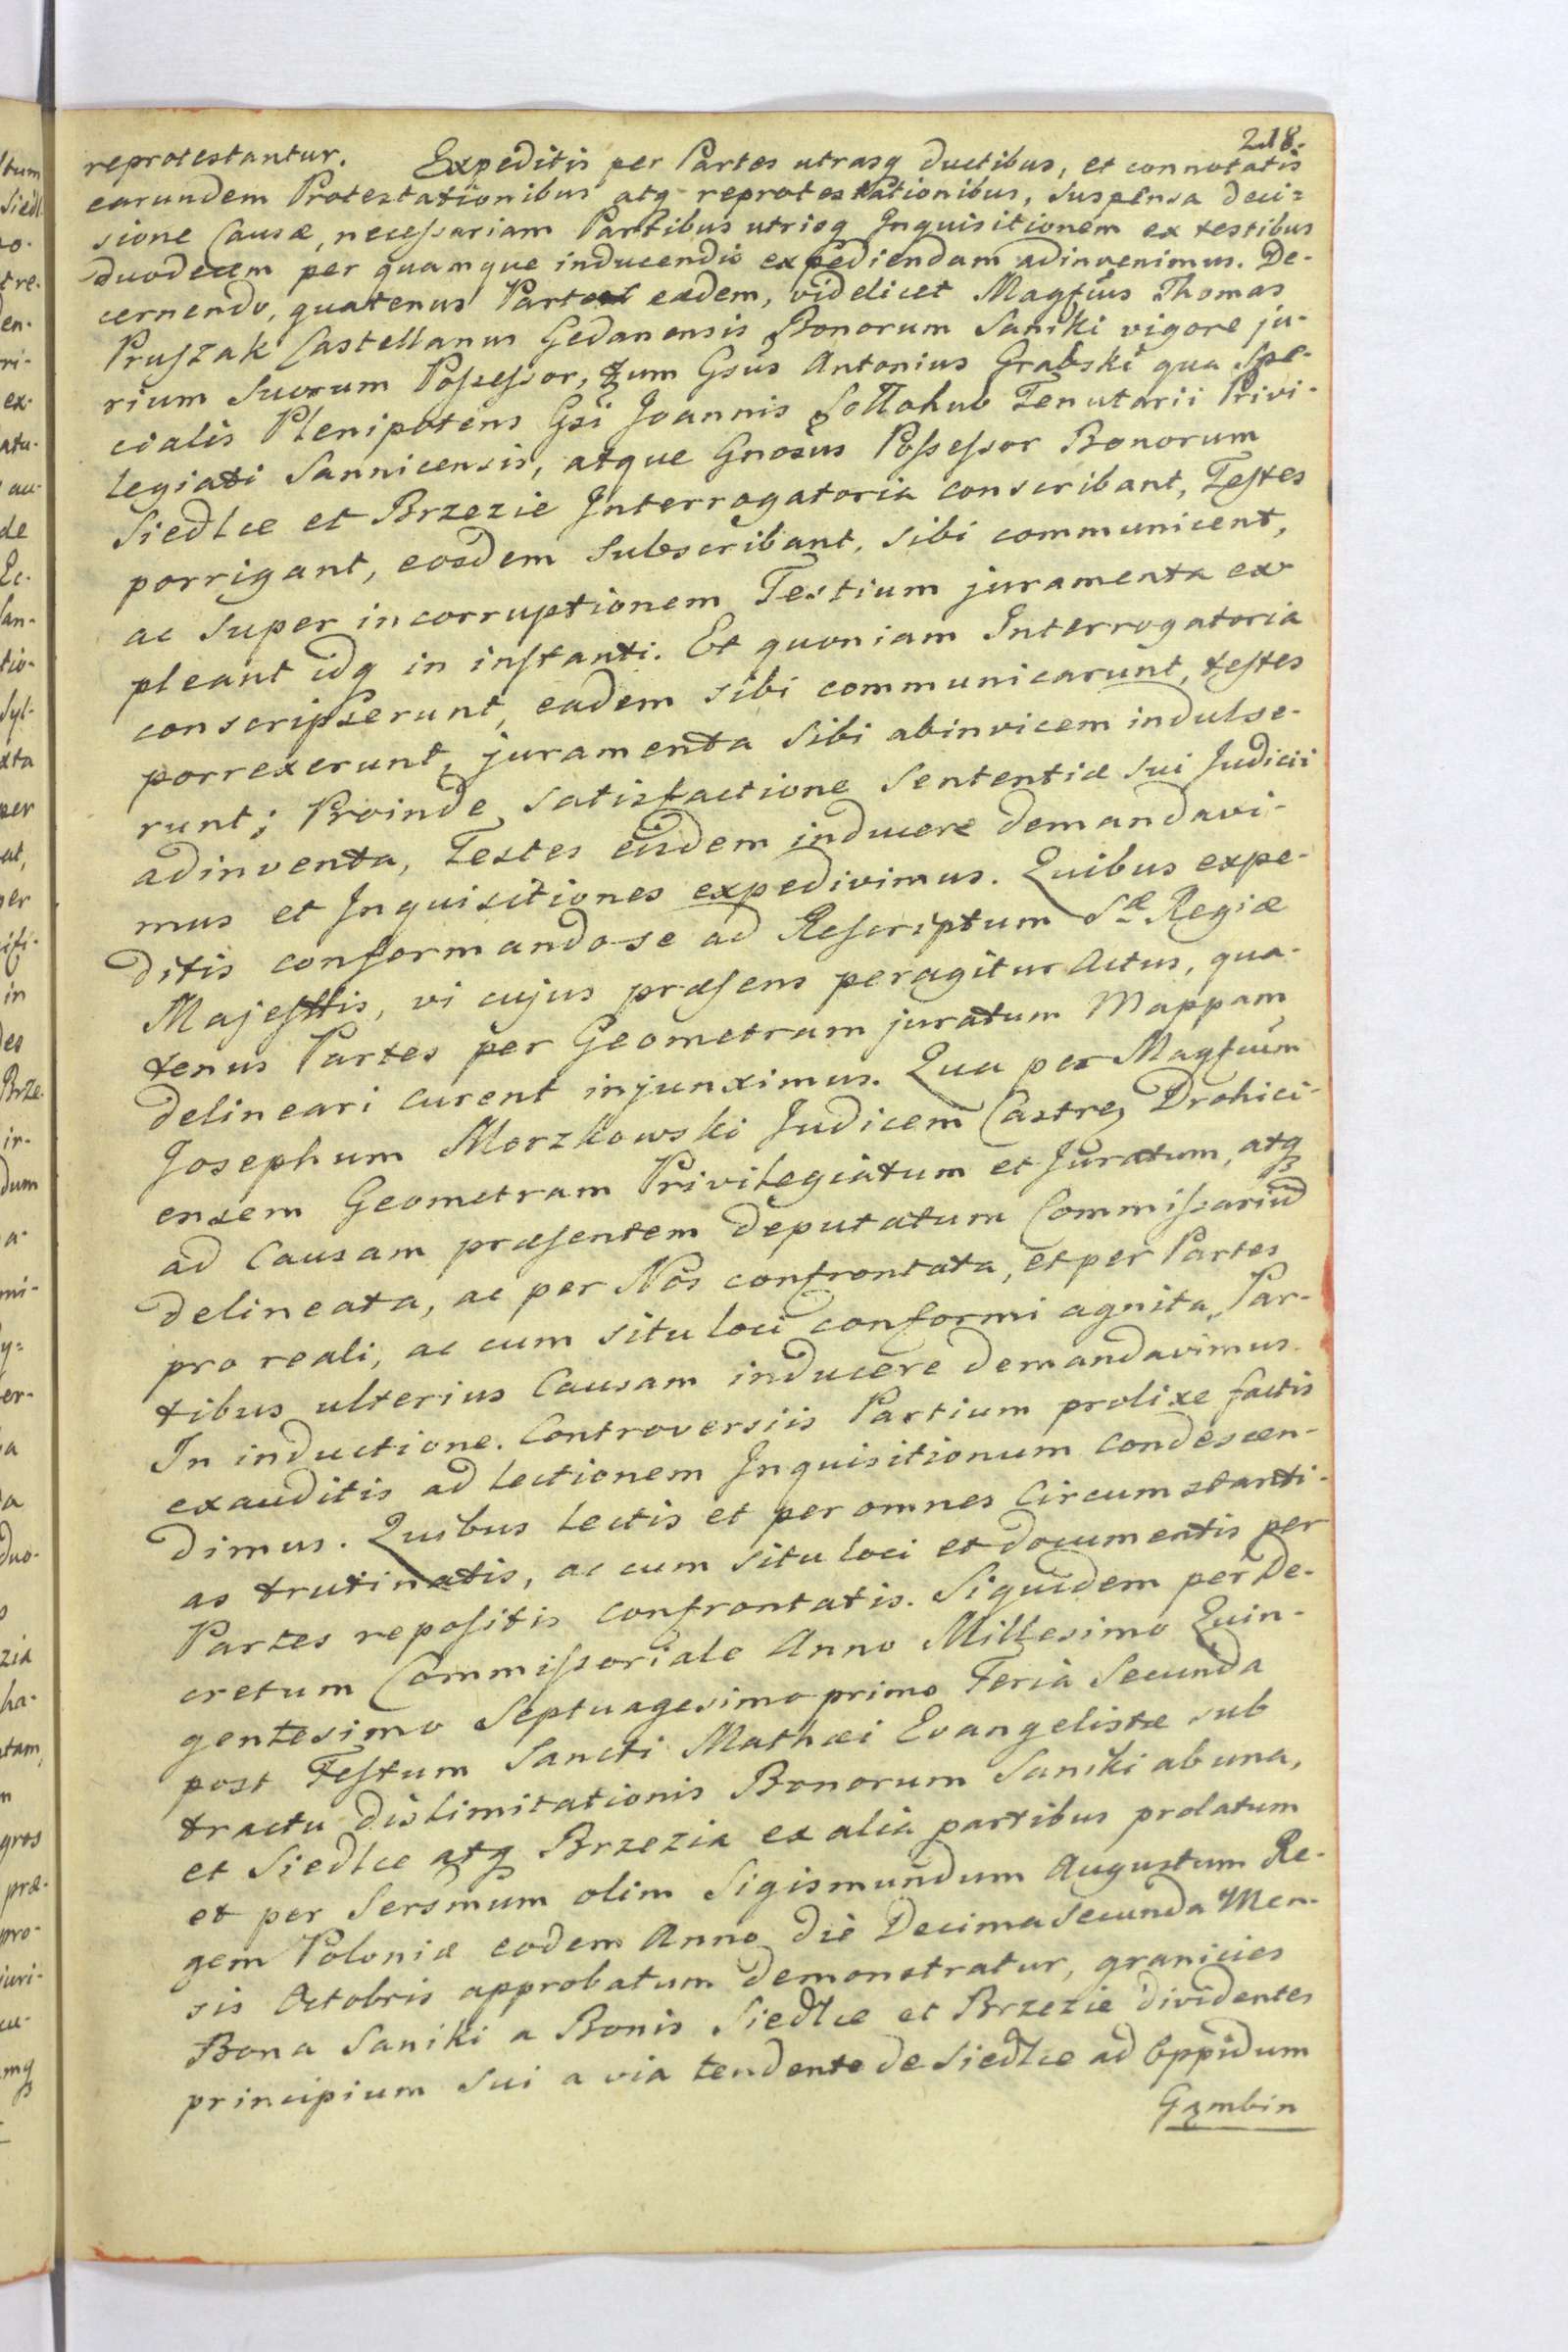 218.
reprotestantur. Expeditis per Partes utrasq ductibus, et connotatis
earundem Protestationibus atq reprotestationibus, suspensa deci=
sione Causæ, necessariam Partibus utrisq Inquisitionem ex testibus
duodecem per quamque inducendis expediendam adinvenimus. De-
cernendo, quatenus Partes eædem, videlicet Magfcus Thomas
Pruszak Castellanus Gedanensis Bonorum Saniki vigore ju-
rium suorum Possessor, tum Gsus Antonius Grabski qua Spe-
cialis Plenipotens Gsi Joannis Sottohub Tenutarii Privi-
legiati Sannicensis, atque Gnosus Possessor Bonorum
Siedlce et Brzezie Interrogatoria conscribant, Testes
porrigant, eosdem subscribant, sibi communicent,
ac super incorruptionem Testium juramenta ex
pleant idq in instanti. Et quoniam Interrogatoria
conscripserunt, eadem sibi communicarunt, testes
porrexerunt, juramenta sibi abinvicem indulse-
runt; Proinde satisfactione sententiæ sui Judicii
adinventa, Testes eisdem inducere demandavi-
mus et Inquisitiones expedivimus. Quibus expe-
ditis conformando se ad Rescriptum Sæ Regiæ
Majesttis, vi cujus præsens peragitur Actus, qua-
tenus Partes per Geometram juratum Mappam
delineari curent injunximus. Qua per Magfcum
Josephum Morzkowski Judicem Castren Drohici-
ensem Geometram Privilegiatum et Juratum, atq
ad Causam præsentem deputatum Commissarium
delineata, ac per Nos confrontata, et per Partes
pro reali, ac cum situ loci conformi agnita, Par-
tibus ulterius Causam inducere demandavimus.
In inductione. Controversiis Partium prolixe factis
exauditis ad lectionem Inquisitionum condescen-
dimus. Quibus lectis et per omnes Circumstanti-
as trutinatis, ac cum situ loci et documentis per
Partes repositis confrontatis. Siquidem per De-
cretum Commissoriale Anno Millesimo Quin-
gentesimo Septuagesimo primo Feria Secunda
post Festum Sancti Mathæi Evangelistæ sub
tractu dislimitationis Bonorum Saniki ab una,
et Siedlce atq Brzezia ex alia partibus prolatum
et per Sersmum olim Sigismundum Augustum Re-
gem Poloniæ eodem Anno die Decima Secunda Men-
sis Octobris approbatum demonstratur, granicies
Bona Saniki a Bonis Siedlce et Brzezie dividentes
principium sui a via tendente de Siedlce ad Oppidum
Gąmbin